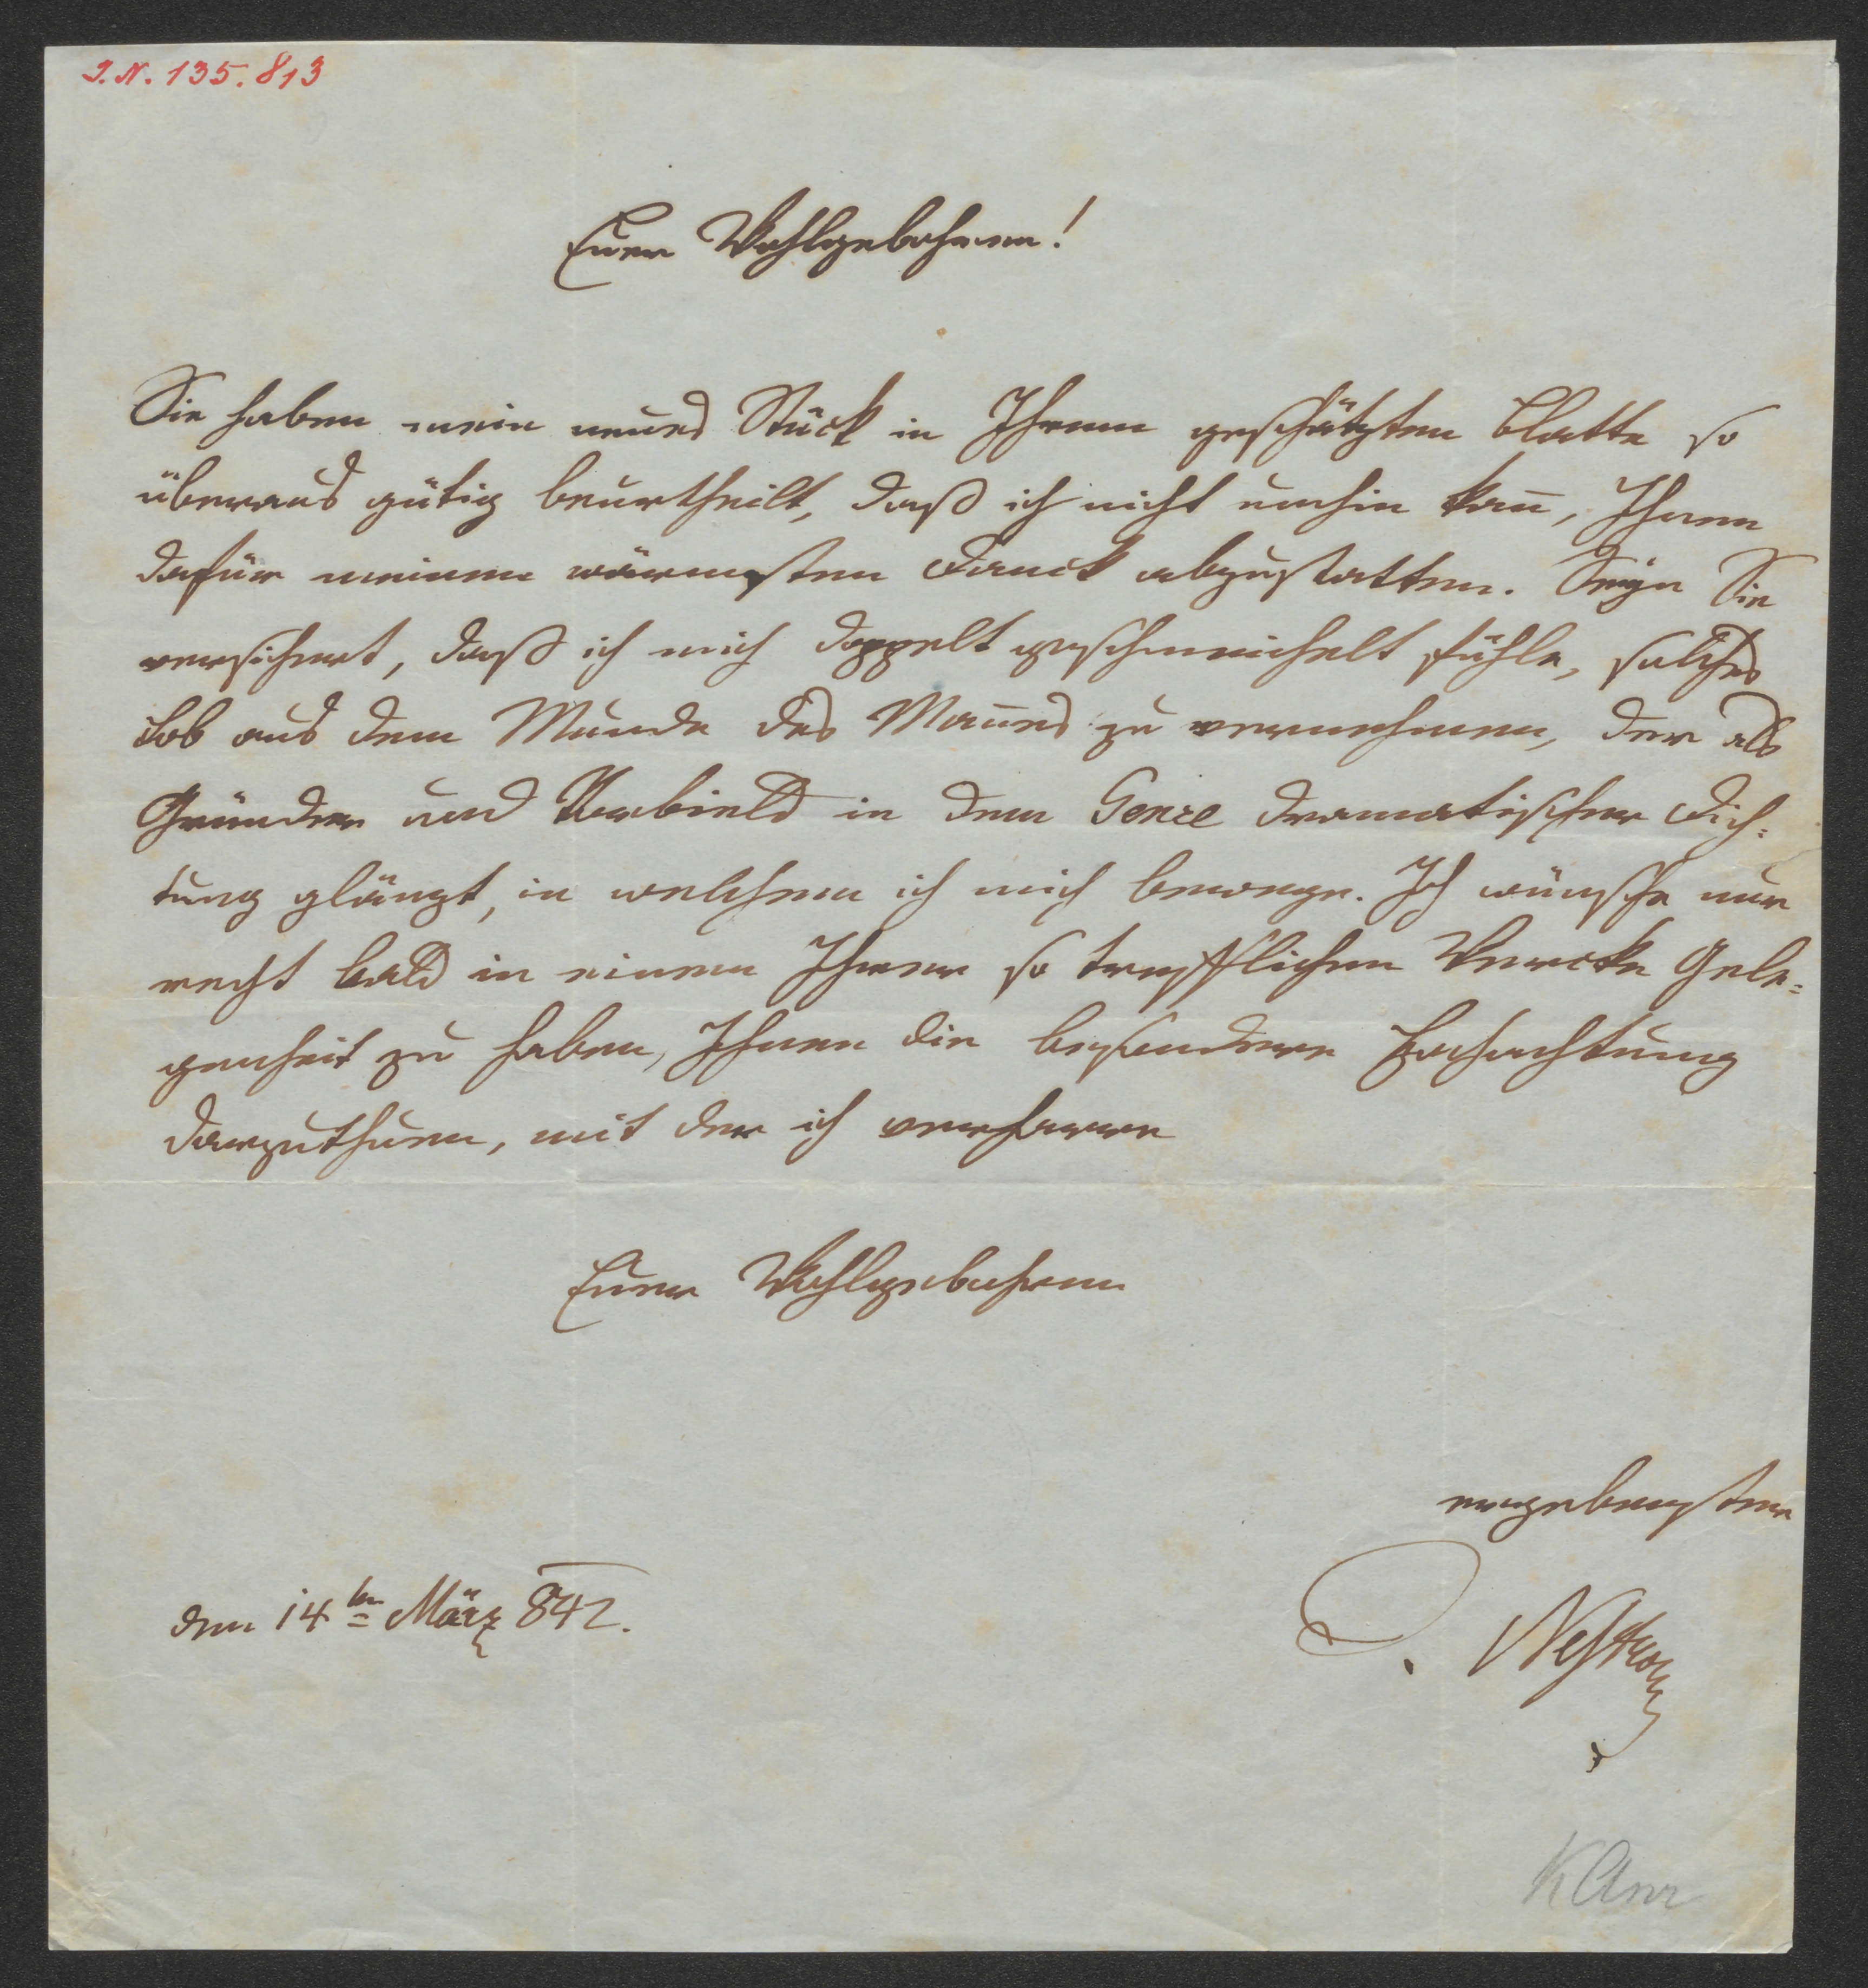 I.N. 135.813
Euer Wohlgebohren!
Sie haben mein neues Stück in Ihrem geschätzten Blatte so
überaus gütig beurtheilt, daß ich nicht umhin kan̄, Ihnen
dafür meinen wärmsten Danck abzustatten. Seÿn Sie
versichert, daß ich mich doppelt geschmeichelt fühle, solches
Lob aus dem Munde des Man̄es zu vernehmen, der als
Gründer und Vorbield in dem Genre dramatischer Dich=
tung glänzt, in welchem ich mich bewege. Ich wünsche nur
recht bald in einem Ihrer so trefflichen Wercke Gele=
genheit zu haben, Ihnen die besondere Hochachtung
darzuthuen, mit der ich verharre
Euer Wohlgebohren
ergebenster
den 14ten März 842.
J. Nestroy